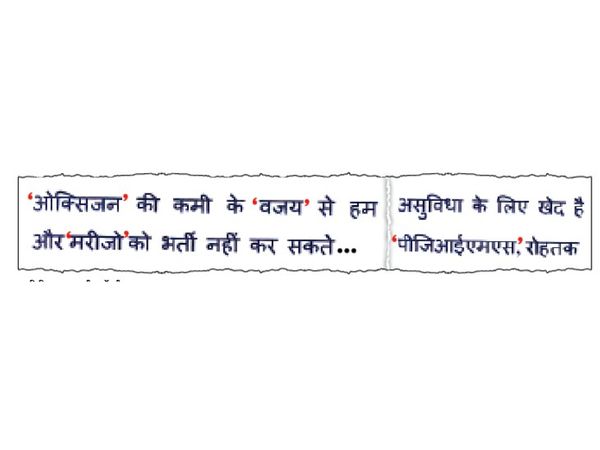 ‘ओक्सिजन’ की कमी के ‘वजय’ से हम
और ‘मरीजो’ को भर्ती नहीं कर सकते...
असुविधा के लिए खेद है
‘पीजिआईएमएस,’ रोहतक